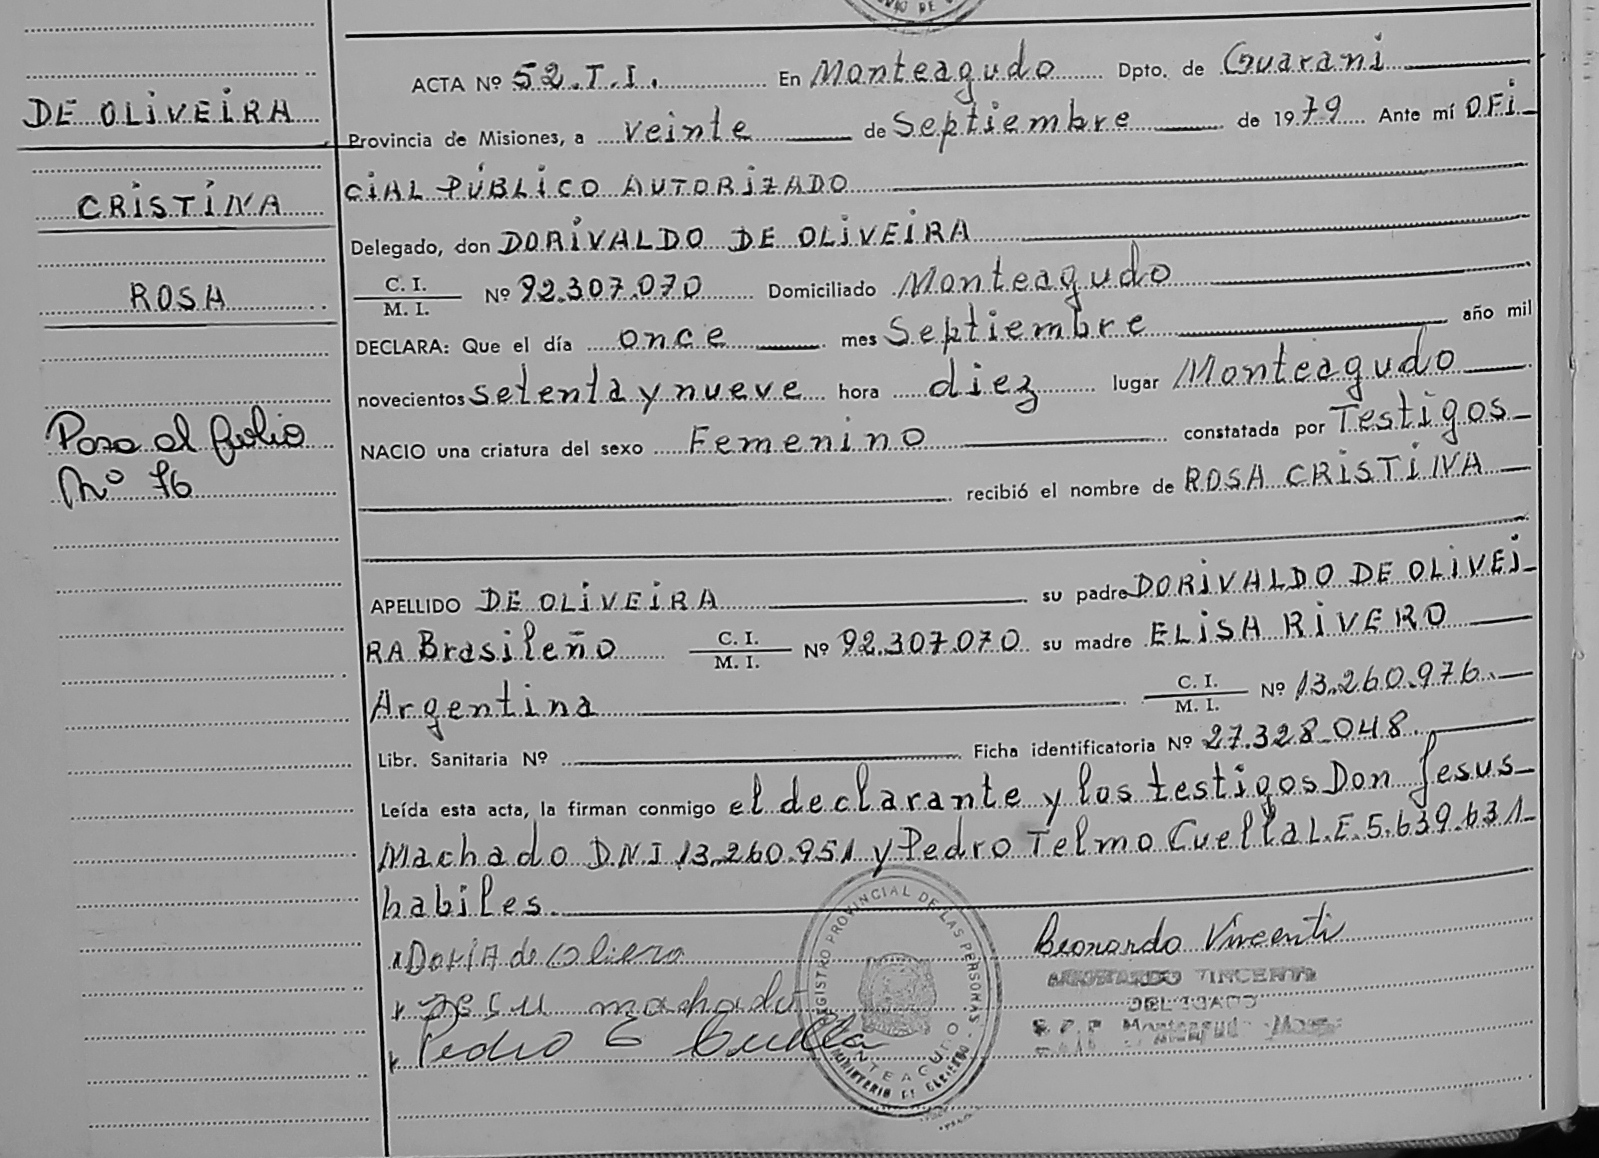 DE OLIVEIRA
CRISTINA
ROSA
Pasa al folio
Nº 76
ACTA Nº 52.T.I. En Monteagudo Dpto. de Guarani
Provincia de Misiones, a veinte de Septiembre de 1979 Ante mí OFI
CIAL PÚBLICO AUTORIZADO
Delegado, don DORIVALDO DE OLIVEIRA
C. I.
M. I. Nº 92.307.070 Domiciliado Monteagudo
DECLARA: Que el día once mes Septiembre año mil
novecientos setenta y nueve hora diez lugar Monteagudo
NACIO una criatura del sexo Femenino constatada por Testigos
recibió el nombre de ROSA CRISTINA
APELLIDO DE OLIVEIRA su padre DORIVALDO DE OLIVEI
RA Brasileño C. I. M. I. Nº 92.307.070 su madre ELISA RIVERO
Argentina C. I. M. I. Nº 13.260.976.
Libr. Sanitaria Nº Ficha identificatoria Nº 27.328.048.
Leída esta acta, la firman conmigo el declarante y los testigos Don Jesus
Machado D.N.I 13.260.951 y Pedro Telmo Cuella L.E. 5.639.631
habiles.
de
machado
Pedro Cuella
REGISTRO PROVINCIAL DE LAS PERSONAS
MONTEAGUDO
MINISTERIO DE GOBIERNO
Leonardo Vincenti
VINCENTI